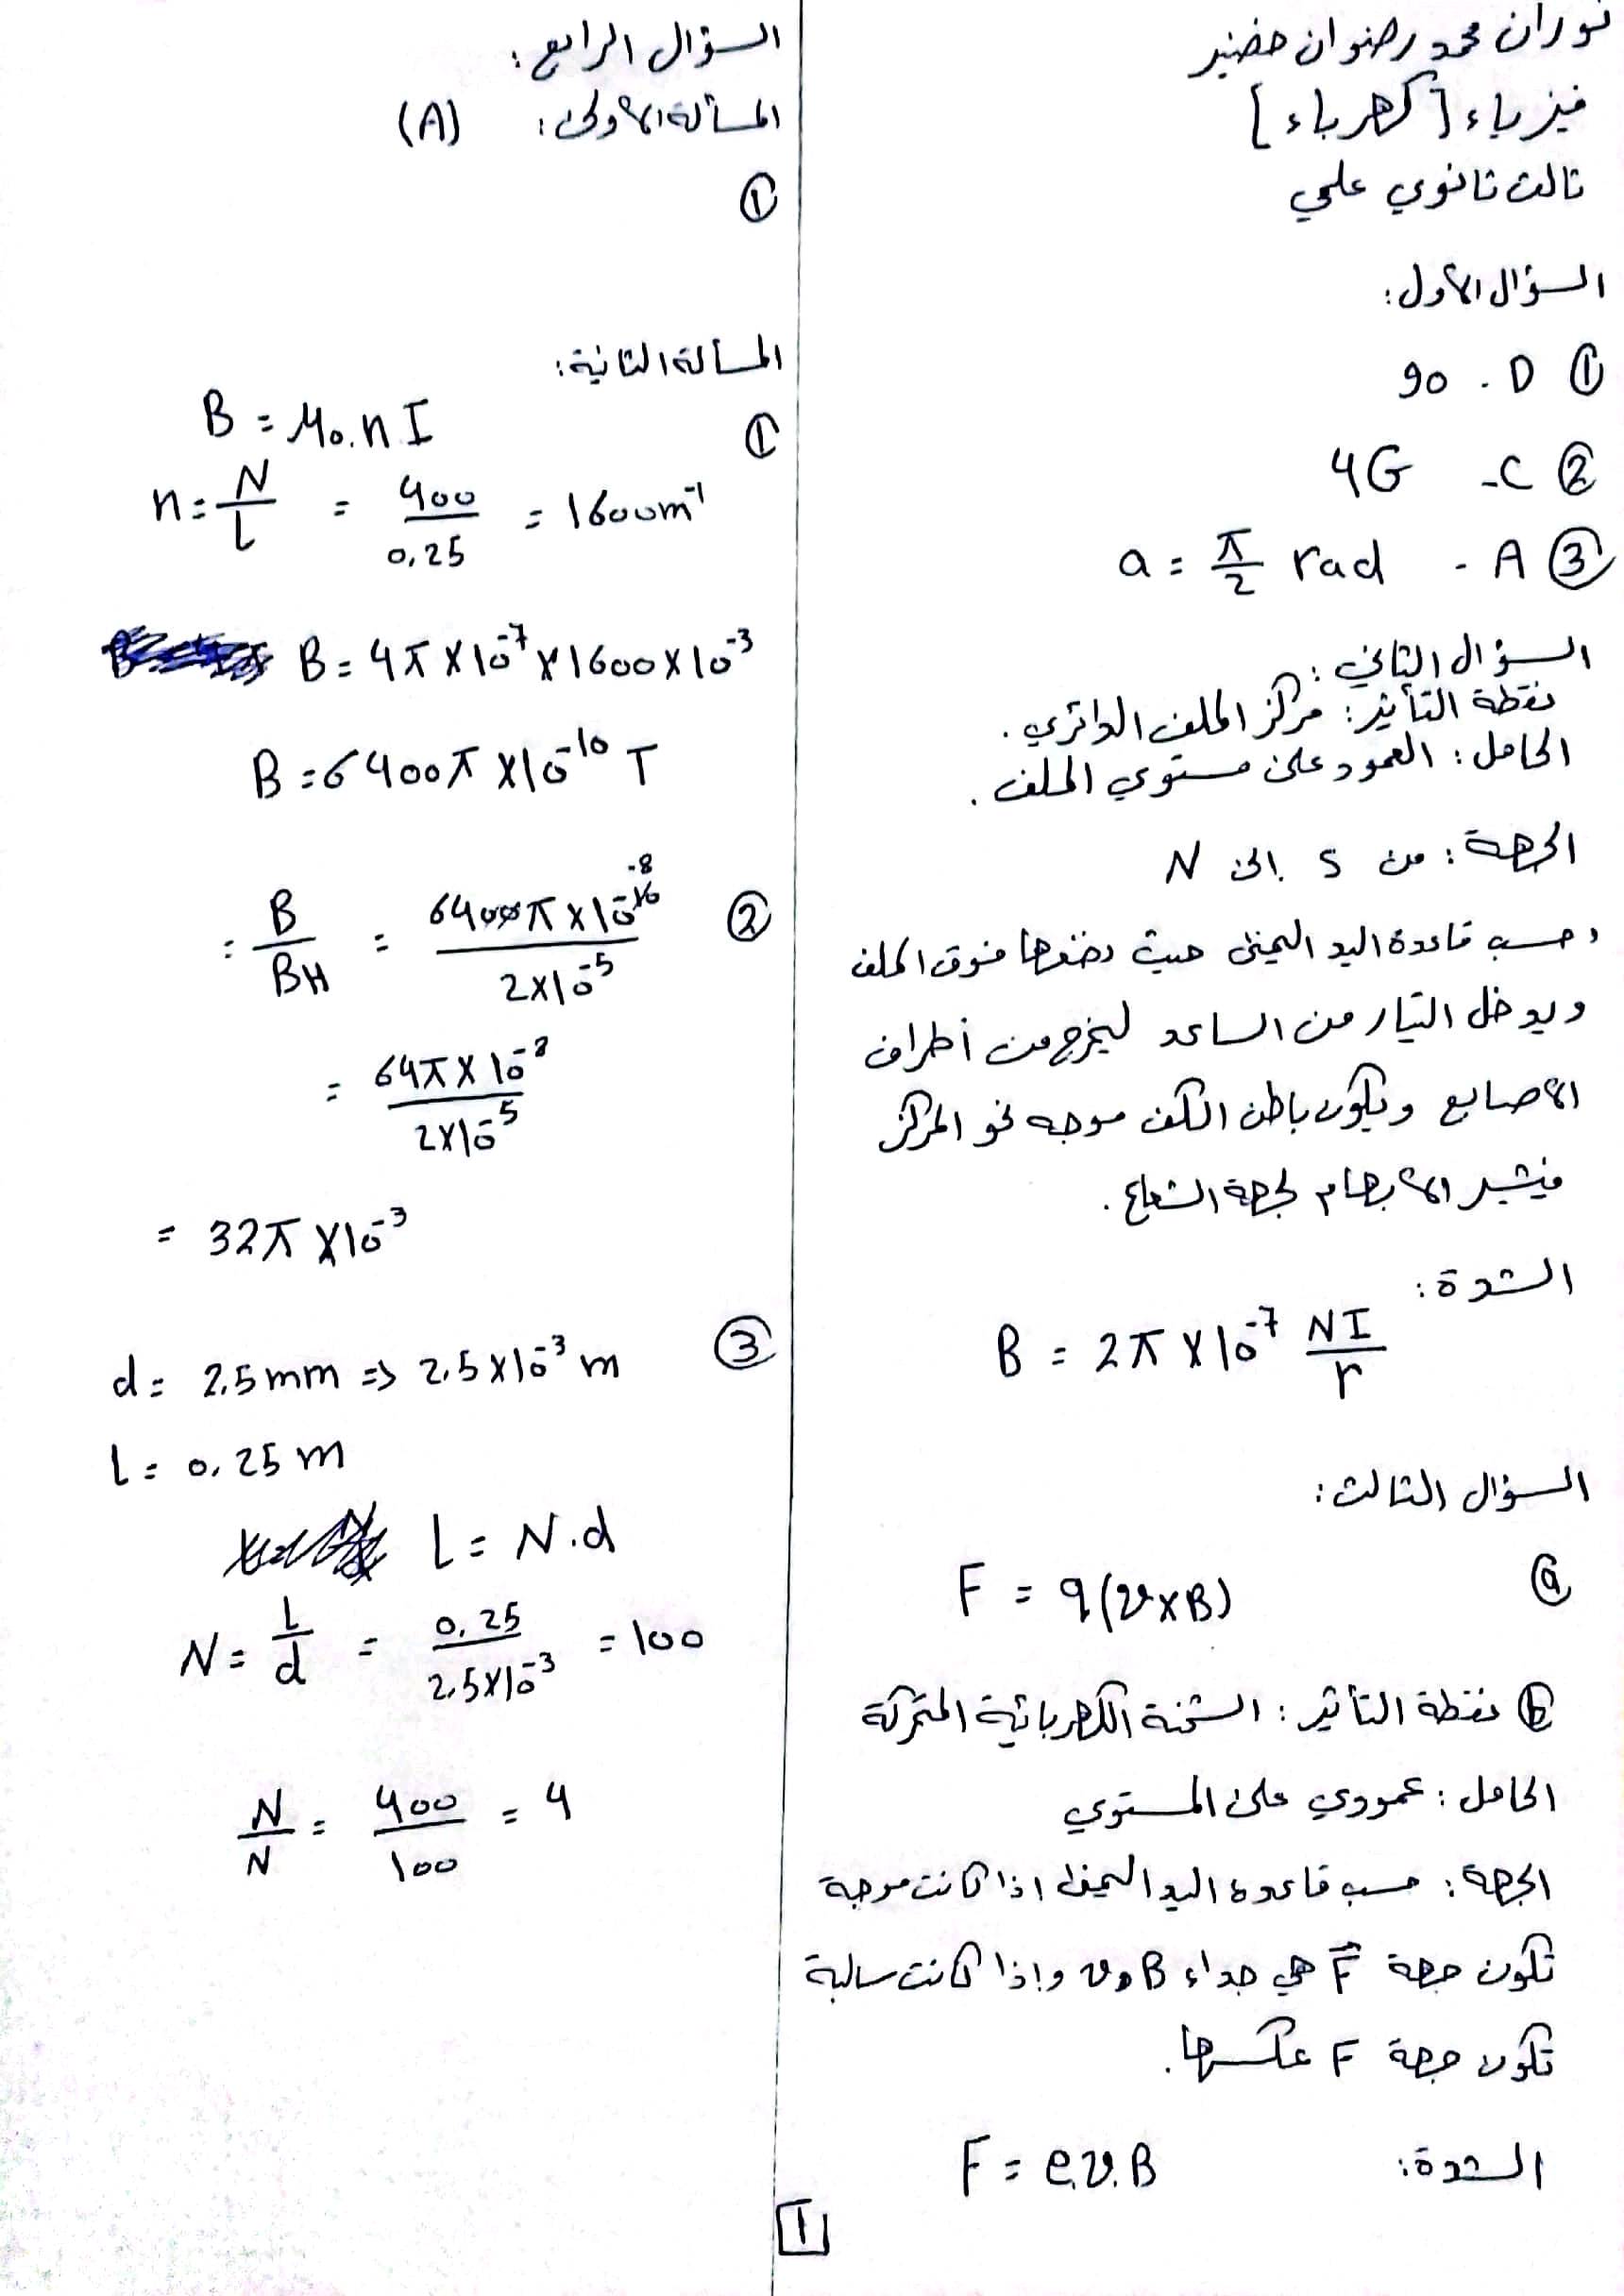 نوران محمد رضوان خضير
فيزياء [كهرباء]
ثالث ثانوي علمي
السؤال الأول:
① D . 90
② C- 4G
③ A - a = π/2 rad
السؤال الثاني:
نقطة التأثير: مركز الملف الدائري.
الحامل: العمود على مستوي الملف.
الجهة: من S إلى N
وحسب قاعدة اليد اليمنى حيث نضعها فوق الملف
ويدخل التيار من الساعد ليخرج من أطراف
الاصابع ويكون باطن الكف موجه نحو المركز
فيشير الابهام لجهة الشعاع.
الشدة:
B = 2π × 10⁻⁷ NI/r
السؤال الثالث:
ⓐ F = q(v×B)
ⓑ نقطة التأثير: الشحنة الكهربائية المتحركة
الحامل: عمودي على المستوي
الجهة: حسب قاعدة اليد اليمنى اذا كانت موجبة
تكون جهة F⃗ هي جداء B و v وإذا كانت سالبة
تكون جهة F عكسها.
الشدة: F = e.v.B
السؤال الرابع:
المسألة الأولى: (A)
①
المسألة الثانية:
① B = μ₀.n I
n = N/L = 400/0,25 = 1600 m⁻¹
B = 4π × 10⁻⁷ × 1600 × 10⁻³
B = 6400π × 10⁻¹⁰ T
② = B/BH = 6400π × 10⁻⁸/2×10⁻⁵
= 64π × 10⁻⁸/2×10⁻⁵
= 32π × 10⁻³
③ d = 2,5 mm => 2,5 × 10⁻³ m
l = 0,25 m
l = N.d
N = l/d = 0,25/2,5×10⁻³ = 100
N/N = 400/100 = 4
1